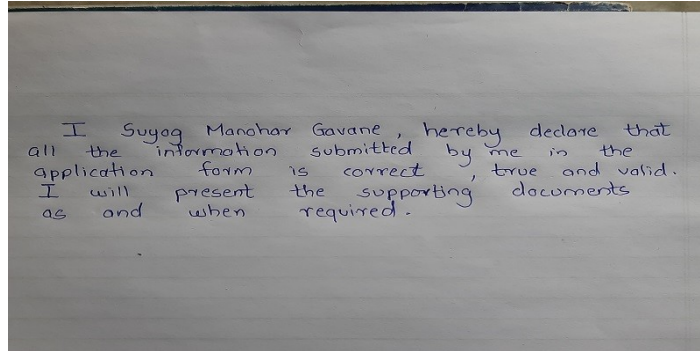 I Suyog Manohar Gavane, hereby declare that
all the information submitted by me in the
application form is correct, true and valid.
I will present the supporting documents
as and when required.